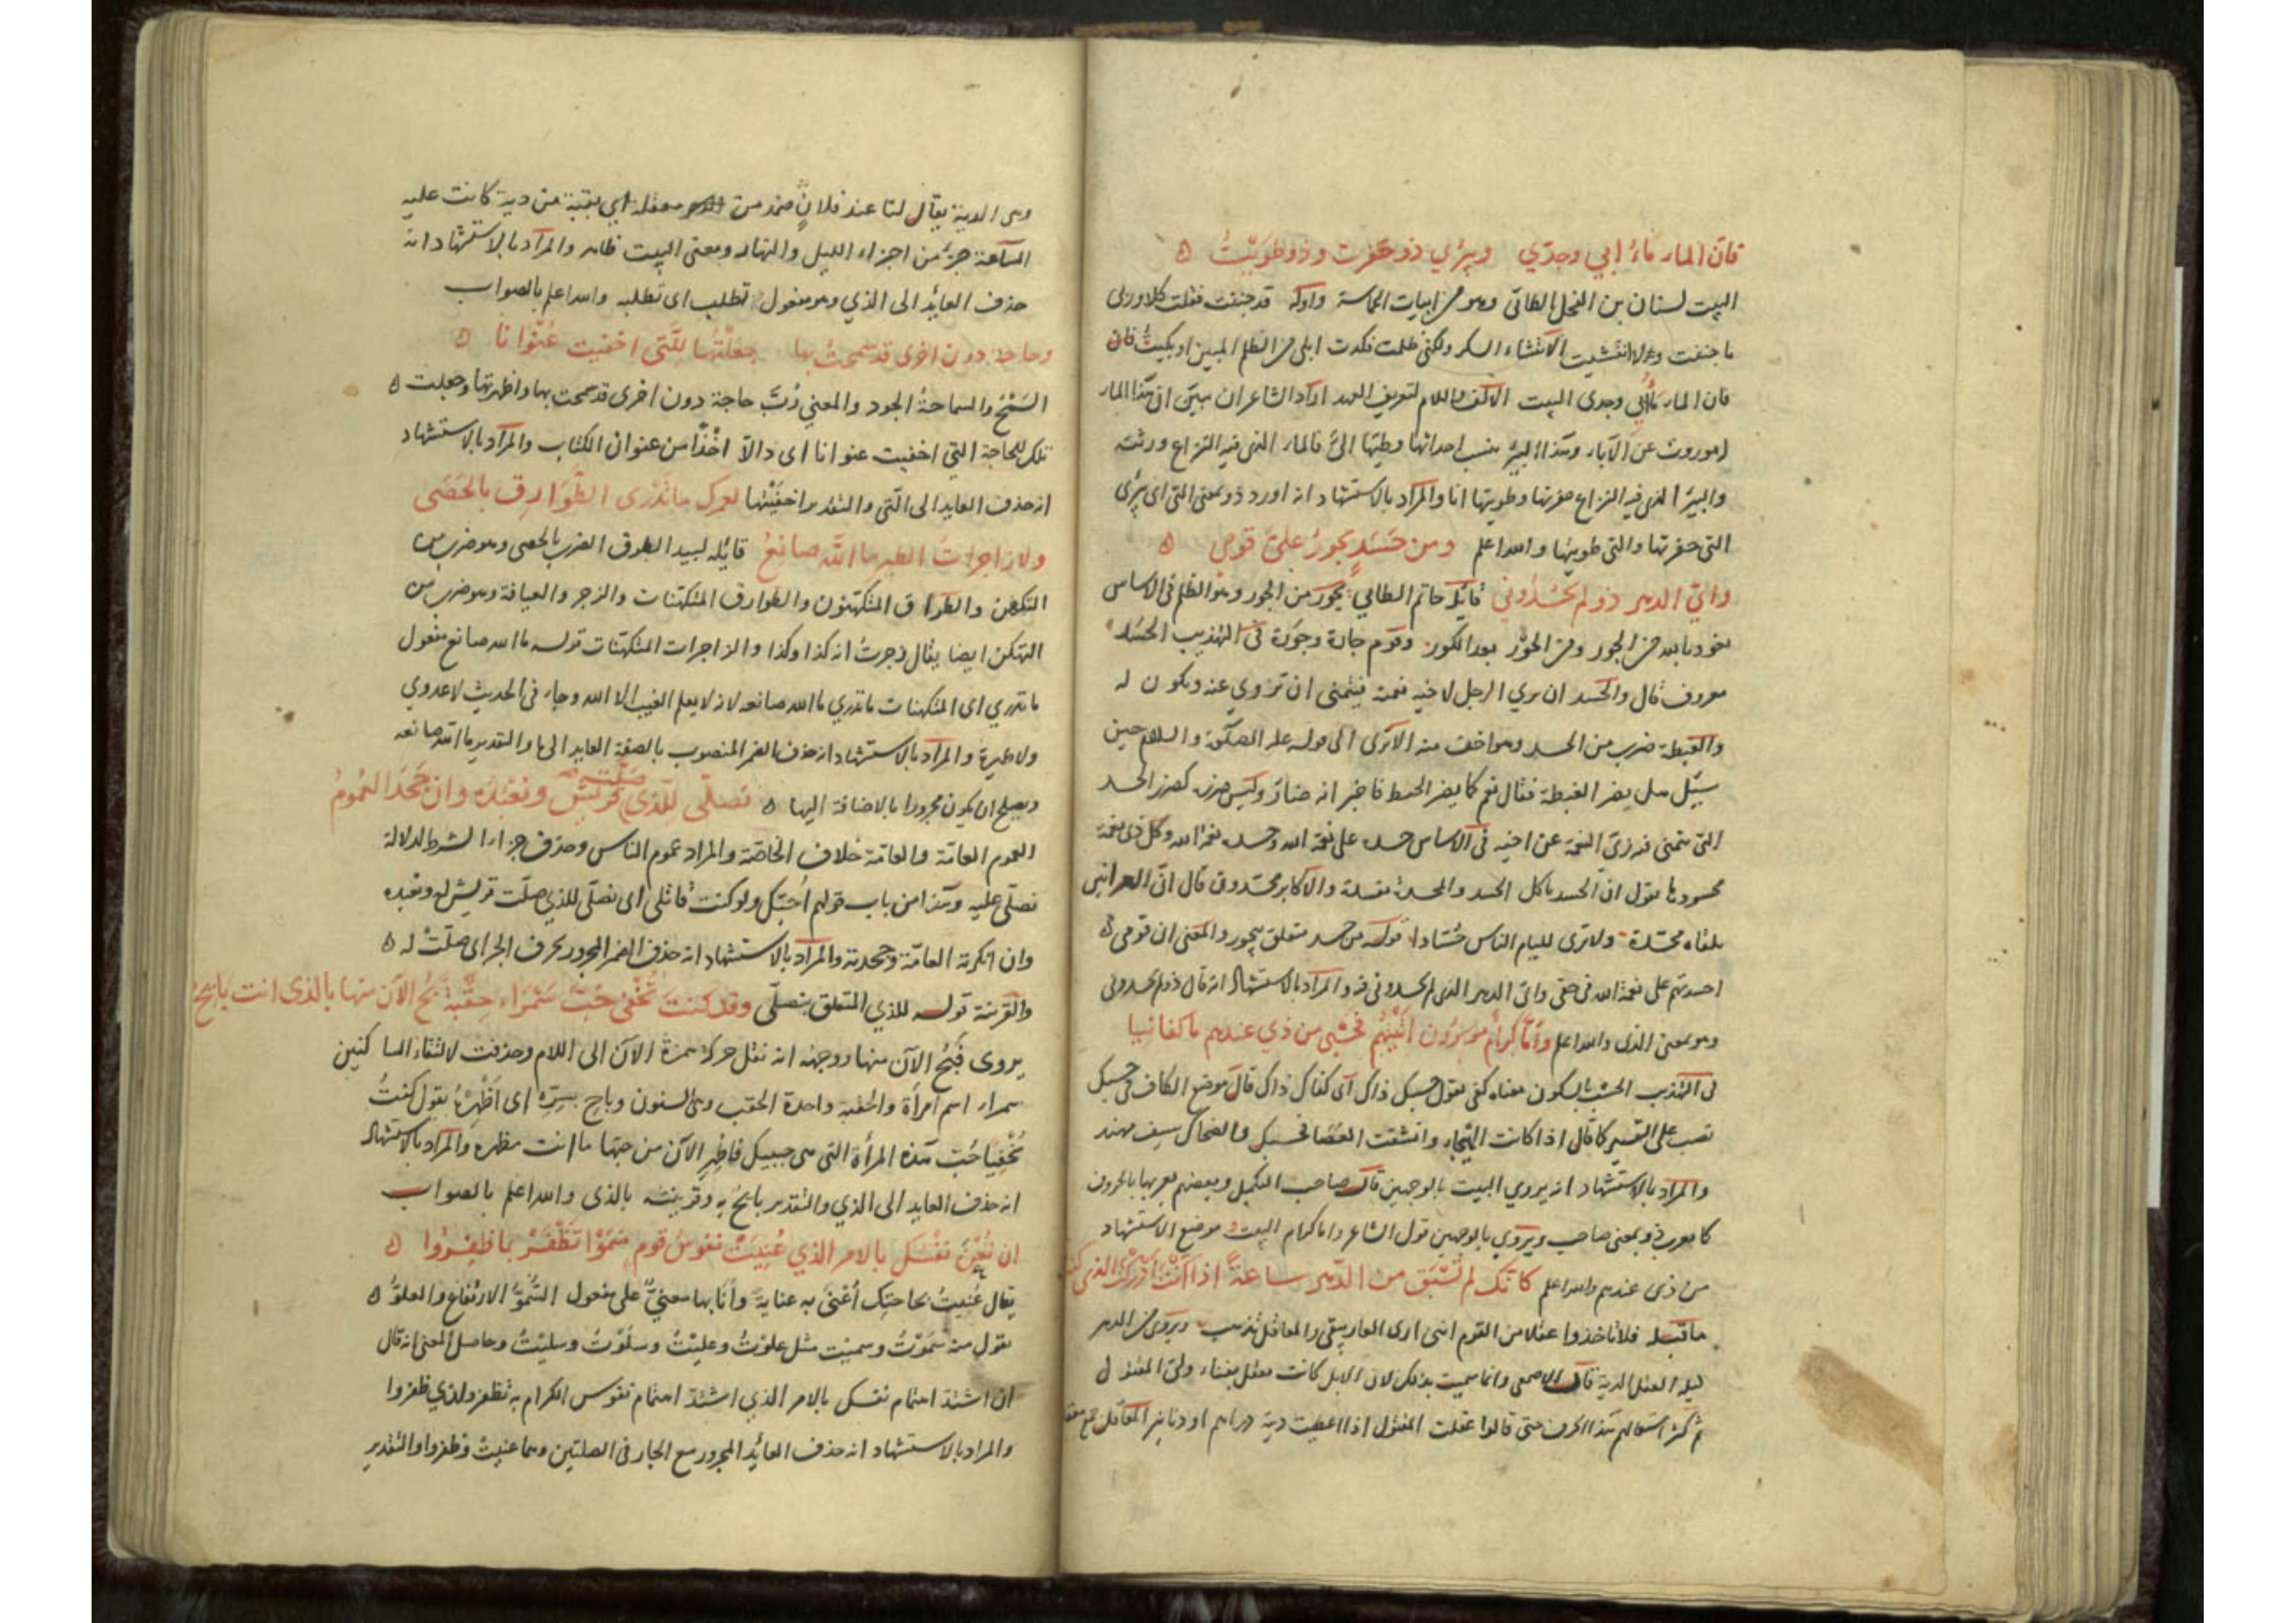 فان الماء ماءُ ابي وجدّي وبيرُي ذو حَفَرت وذو طوَيْتُ ه
البيت لسنان بن الفحل الطائي وهو من ابيات الحماسة واوله قد جننت فقلت كلا وربي
ما جننت ولا انتشيت الانتشاء السكر ولكني ظلمت فكدت ابكي من الظلم المبين او بكيتُ فان
فان الماء ماء ابي وجدي البيت الالف واللام لتعريف العهد اراد الشاعر ان يبين ان هذا الماء
موروث عن الآباء وهذا البير ينسب احداثها وطيها اليّ فالماء الذي فيه النزاع ورثته
والبير الذي فيه النزاع حفرتها وطويتها انا والمراد بالاستشهاد انه اورد ذو بمعنى التي اى بيري
التي حفرتها والتي طويتها والله اعلم ومن حَسَدٍ يجورُ عليَّ قومي ه
وايّ الدهر ذو لم يحسُدُوني قائله حاتم الطائي يجور من الجور وهو الظلم في الاساس
نعوذ بالله من الجور ومن الحوْر بعد الكور وقوم جارة وجَوَرة في التهذيب الحسد
معروف قال والحسد ان يري الرجل لاخيه نعمة فيتمنى ان تزوي عنه وتكون له
والغبطة ضرب من الحسد وهو اخف منه الا ترى الى قوله عليه الصلوة والسلام حين
سيل هل يضر الغبط فقال نعم كما يضر الخبط فاخبر انه ضار وليس ضرره كضرر الحسد
التي يتمنى فيه زي النعمة عن اخيه في الاساس حسده على نعمة الله وحسده نعمة الله وكل ذي نعمة
محسودها تقول ان الحسد ياكل الجسد والمحسدة مفسدة والاكابر محسدون قال ان العرانين
تلقاه محسدة ولا ترى للئام الناس حُسّادا قوله من حسد متعلق بيجور والمعنى ان قومي
احسدتهم على نعمة الله في حقي واي الدهر الذي لم يحسدوني فيه والمراد بالاستشهاد انه قال ذو لم يحسدوني
وهو بمعنى الذي والله اعلم وامّا كرامٌ موسرُون اتيتهم فحَسْبي من ذي عندهم ما كفانيا
في التهذيب الحسب بالسكون معناه كفى تقول حسبك ذاك اى كفاك ذاك قال موضع الكاف في حسبك
نصب على التفسير كما قال اذا كانت الهيجاء وانشقت العصا فحسبك والضحاك سيف مهند
والمراد بالاستشهاد انه يروي البيت بالوجهين قال صاحب التكميل وبعضهم يعربها بالحروف
كما يعرب ذو بمعنى صاحب ويروي بالوجهين قول الشاعر واما كرام البيت وموضع الاستشهاد
من ذى عندهم والله اعلم كانك لم تُسْبَق من الدهر ساعةً اذا انْتَ ادْركْتَ الذي كنت
ما قبله فلا تاخذوا عقلا من القوم انني ارى العار يبقى والمعاقل تذهب ويروى من الدهر
ليلة العقل الدية قال الاصمعي وانما سميت بذلك لان الابل كانت تعقل بفناء ولي المقتول
ثم كثر استعمالهم هذا الحرف حتى قالوا عقلت المقتول اذا اعطيت ديته دراهم او دنانير المعاقل جمع معقلة
وهي الدية يقال لنا عند فلانٍ ضمد من معقلة اي بقية من دية كانت عليه
الساعة جزءٌ من اجزاء الليل والنهار ومعنى البيت ظاهر والمراد بالاستشهاد انه
حذف العايد الى الذي وهو مفعول تطلب اى تطلبه والله اعلم بالصواب
وحاجة دون اخرى قد سمحتُ بها جعلتُها للّتي اخفيت عُنْوانا ه
السَنْحُ والسماحةُ الجود والمعني رُبّ حاجة دون اخرى قد سمحت بها واظهرتها وجعلت ه
تلك للحاجة التي اخفيت عنوانا اى دالّا اخْذًا من عنوان الكتاب والمراد بالاستشهاد
انه حذف العايد الى الّتي والتقدير اخفَيْتُها لعمرك ما تَدْرى الطَّوَارق بالحَصَى
ولا زاجراتُ الطير ما اللّه صانِعُ قائله لبيد الطرق الضرب بالحصى وهو ضرب من
التكهن والطراق المتكهنون والطوارق المتكهنات والزجر والعيافة وهو ضرب من
التهكن ايضا يقال زجرتُ انه كذا وكذا والزاجرات المتكهنات قوله ما الله صانع مفعول
ما تدري اى المتكهنات ما تدري ما الله صانعه لانه لا يعلم الغيب الا الله وجاء في الحديث لا عدوي
ولا طيرة والمراد بالاستشهاد انه حذف الضمير المنصوب بالصفة العايد الى ما والتقدير ما الله صانعه
ويصلح ان يكون مجرورا بالاضافة اليها ه نصلّي للّذي صَلّت قريشٌ ونعبُده وان جَحَدَ العُمُومُ
العموم العامّة والعامّة خلاف الخاصّة والمراد عموم الناس وحذف جزاء الشرط لدلالة
نصلّي عليه وهذا من باب قولهم اُحبّك ولو كنت قاتلي اى نصلّي للذي صلّت قريش له ونعبده
وان انكرته العامّة وجحدته والمراد بالاستشهاد انه حذف الضمير المجرور بحرف الجر اى صلّتْ له ه
والقرينة قوله للذي المتعلق بنصلّي وقد كنتَ تُخْفي حُبَّ سَمْراء حِقْبةً بُحُ الآن منها بالذى انت بايحُ
يروى فَبُحْ الآن منها ووجهه انه نقل حركة همزة الآن الى اللام وحذفت لالتقاء الساكنين
سمراء اسم امرأة والحقبة واحدة الحقب وهي السنون وباح بسرّه اى اَظْهرهُ يقول كنتُ
تُخْفِيًا حُبّ هذه المرأة التي هى حبيبك فاظْهِر الآن من حبها ما انت مظهره والمراد بالاستشهاد
انه حذف العايد الى الذي والتقدير بايحُ به وقرينته بالذى والله اعلم بالصواب
ان تُعْنَ نَفْسُك بالامر الذي عُنِيَتْ نفوسُ قوم سَمَوْا تَظْفَرْ بما ظفِرُوا ه
يقال عُنِيتُ بحاجتك اُعْنَى به عنايةً وأنا بها معنيٌّ على مفعول السُّمُوُّ الارتفاع والعلوُّ ه
تقول منه سَمَوْتُ وسميْت مثل علوْتُ وعليْتُ وسلَوْتُ وسليْتُ وحاصل المعنى انه قال
ان اشتدّ اهتمام نفسك بالامر الذي اشتدّ اهتمام نفوس الكرام به تظفر بالذي ظفروا
والمراد بالاستشهاد انه حذف العائد المجرور مع الجار في الصلتين وهما عنيتْ وظفروا والتقدير